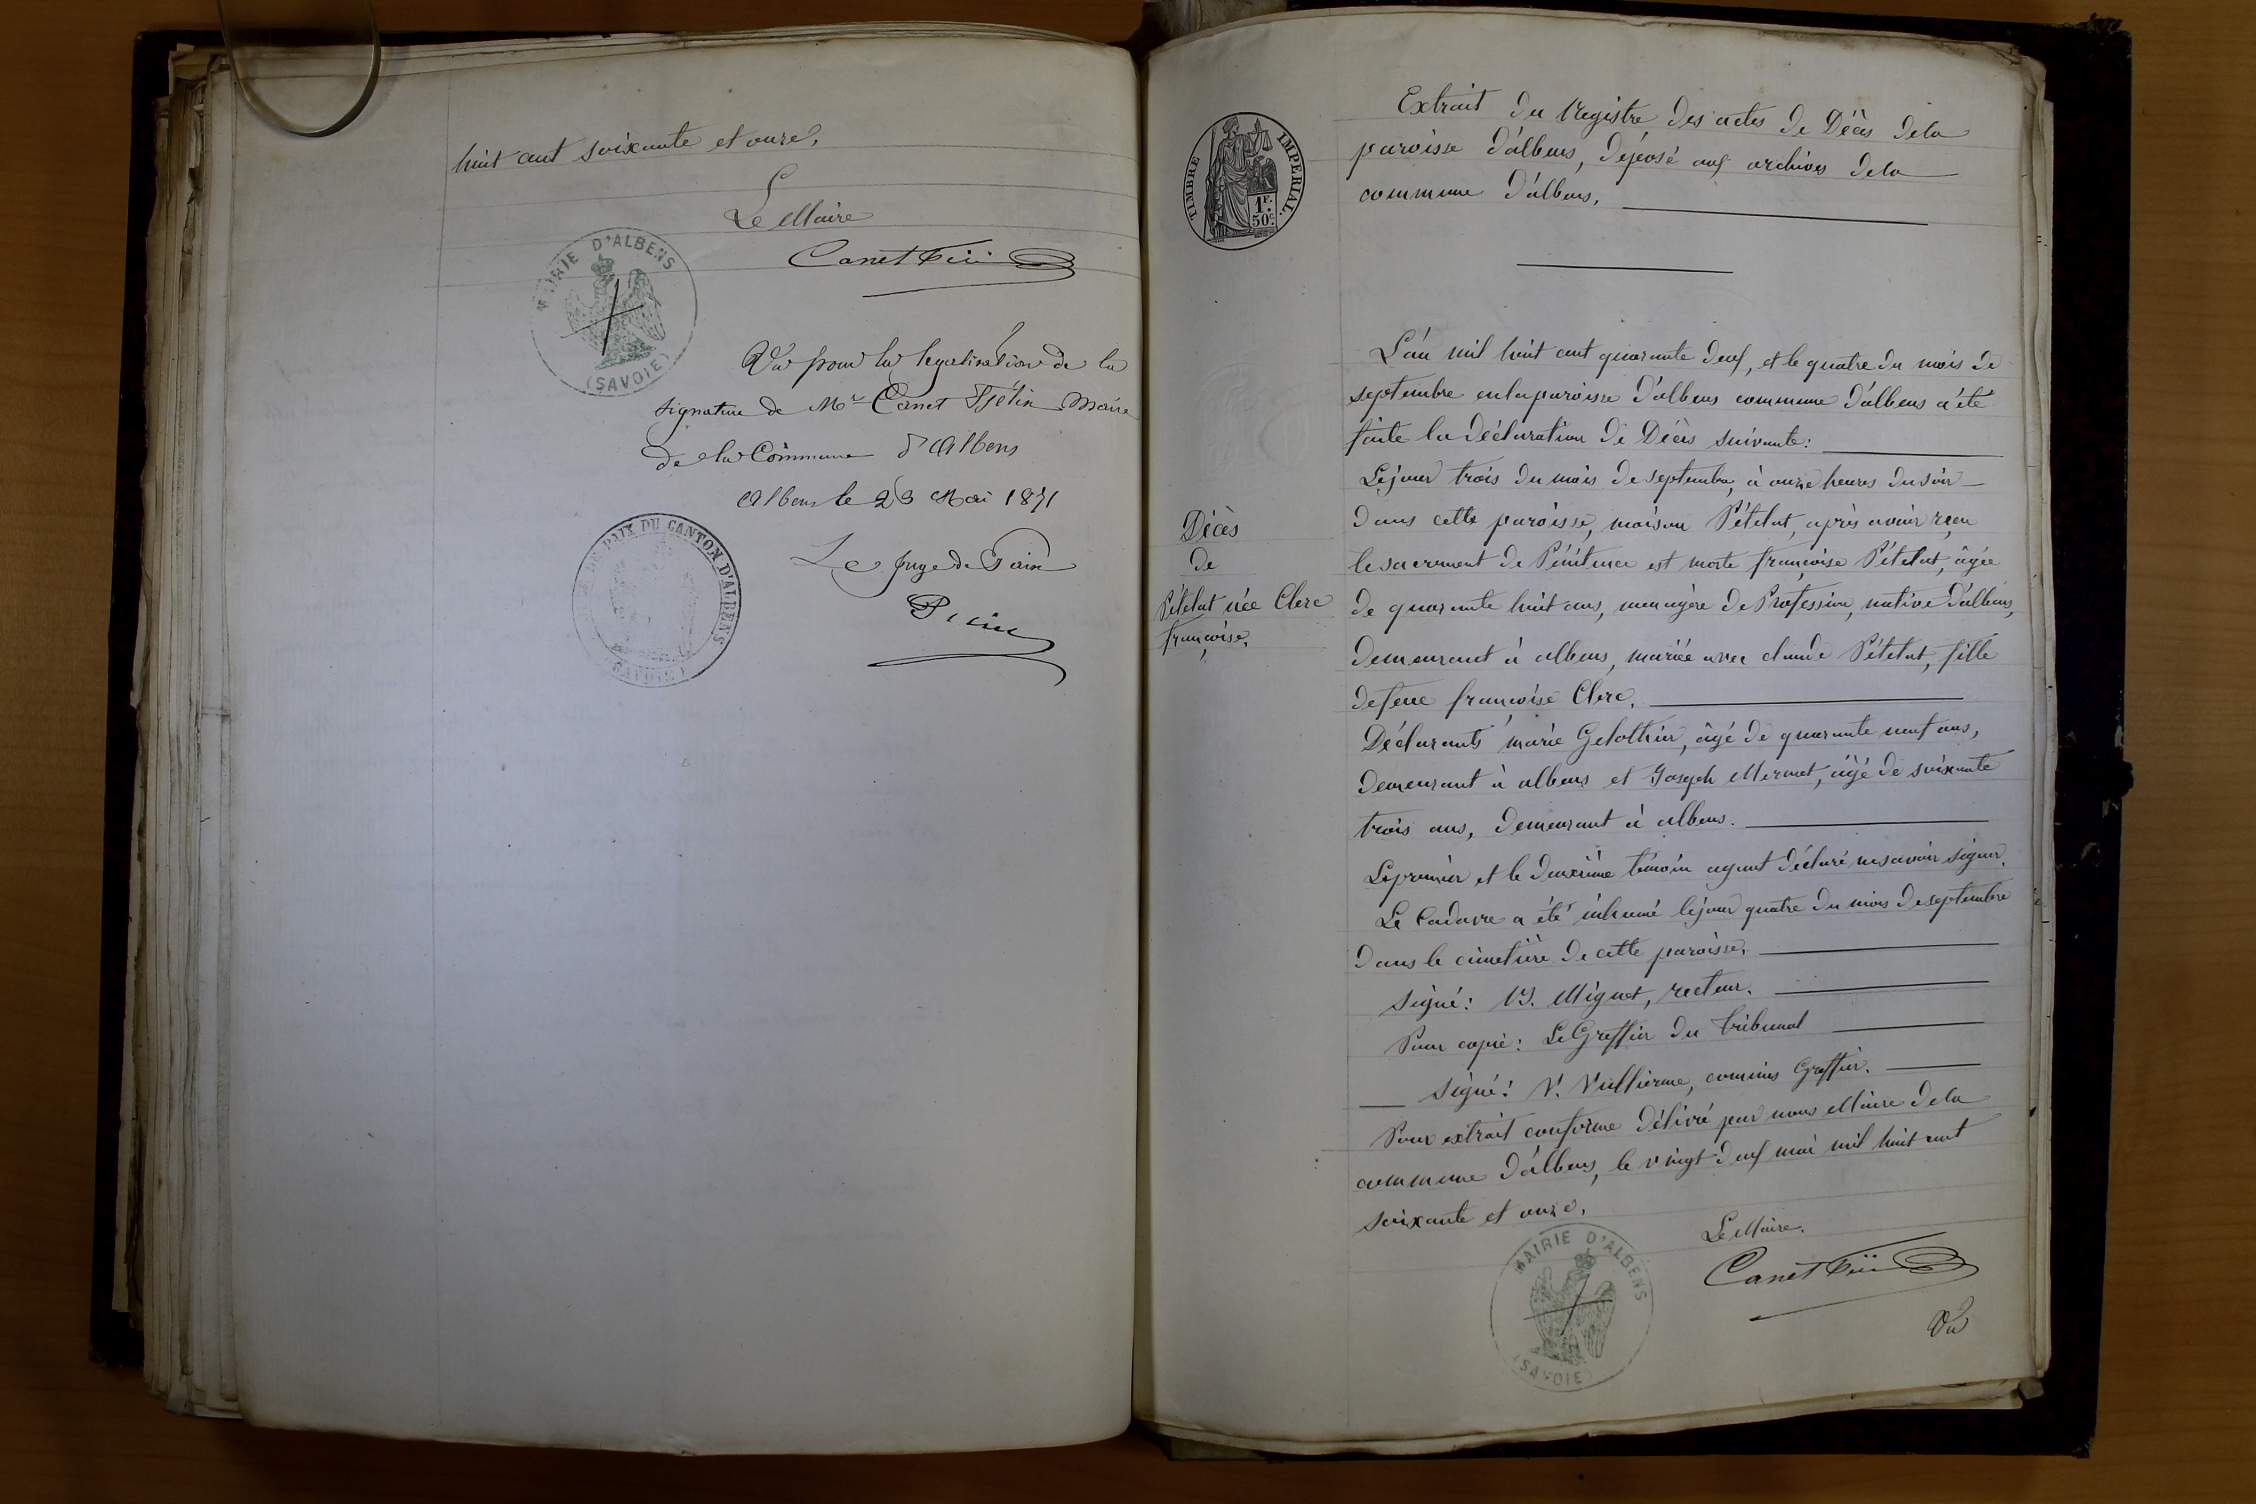 huit cent soixante et onze,
Le Maire
Canet
MAIRIE D'ALBENS
(SAVOIE)
Vu pour la legalisation de la
signature de Mr Canet Maire
de la Commune d'Albens
Albens le 23 Mai 1871
DE PAIX DU CANTON D'ALBENS
(SAVOIE)
Le Juge de Paix
TIMBRE IMPERIAL.
1F.
50c
Extrait du Registre des actes de Décès de la
paroisse d'albens, déposé aux archives de la
commune d'albens.
L'an mil huit cent quarante deux, et le quatre du mois de
septembre en la paroisse d'albens commune d'albens a été
faite la déclaration de Décès suivante:
Le jour trois du mois de septembre, à onze heures du soir
Décès
de
Pételat née Clerc
françoise.
dans cette paroisse, maison Pételat, après avoir reçu
le sacrement de Pénitence est morte françoise Pételat, âgée
de quarante huit ans, menagère de Profession, native d'albens,
demeurant à albens, mariée avec claude Pételat, fille
de feue françoise Clerc.
Déclarants marie Gelothier, âgé de quarante neuf ans,
demeurant à albens et Joseph Mermet, âgé de soixante
trois ans, demeurant à albens.
Le premier et le deuxième témoin ayant déclaré ne savoir signer.
Le Cadavre a été inhumé le jour quatre du mois de septembre
dans le cimetière de cette paroisse.
signé: Miguet, recteur.
Pour copie: Le Greffier du Tribunal
signé: V. Vullierme, commis Greffier.
Pour extrait conforme délivré par nous Maire de la
commune d'albens, le vingt deux mai mil huit cent
soixante et onze.
Le Maire.
Canet
MAIRIE D'ALBENS
(SAVOIE)
Vu